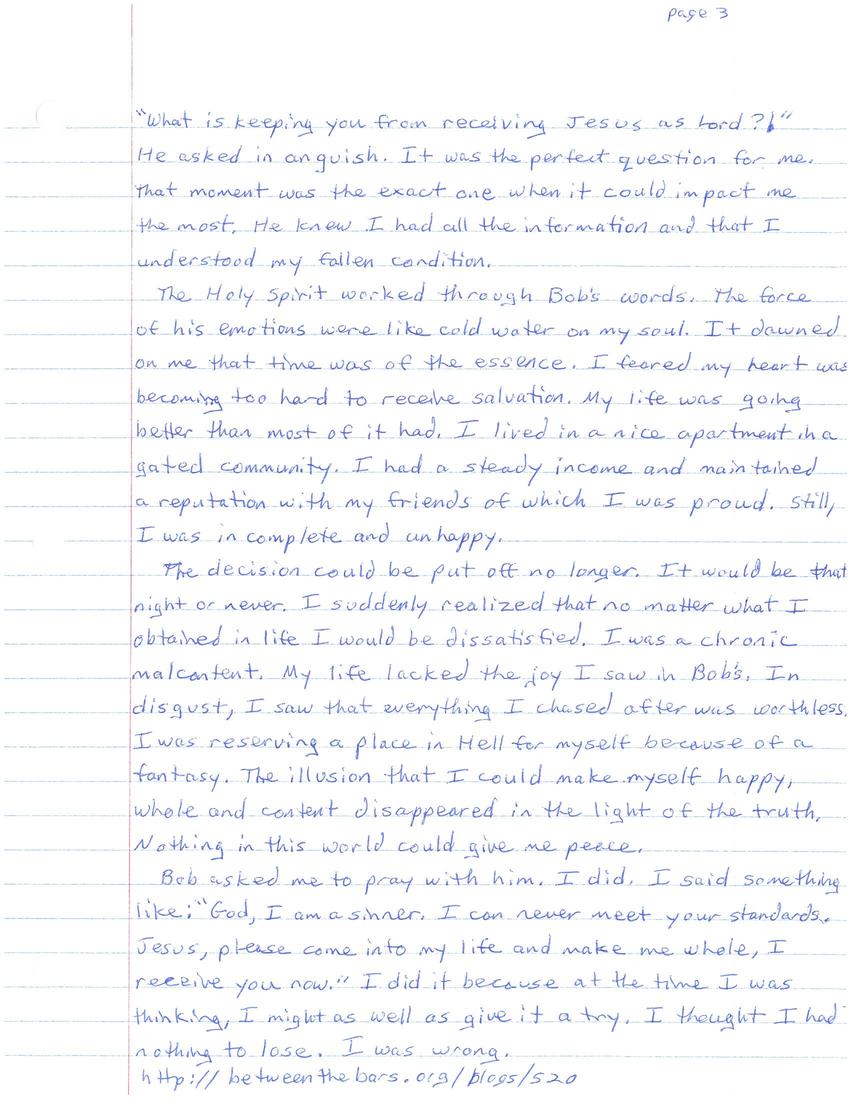 page 3
"What is keeping you from receiving Jesus as Lord?!"
He asked in anguish. It was the perfect question for me.
That moment was the exact one when it could impact me
the most. He knew I had all the information and that I
understood my fallen condition.
The Holy Spirit worked through Bob's words. The force
of his emotions were like cold water on my soul. It dawned
on me that time was of the essence. I feared my heart was
becoming too hard to receive salvation. My life was going
better than most of it had. I lived in a nice apartment in a
gated community. I had a steady income and maintained
a reputation with my friends of which I was proud. Still,
I was incomplete and unhappy.
The decision could be put off no longer. It would be that
night or never. I suddenly realized that no matter what I
obtained in life I would be dissatisfied. I was a chronic
malcontent. My life lacked the joy I saw in Bob's. In
disgust, I saw that everything I chased after was worthless.
I was reserving a place in Hell for myself because of a
fantasy. The illusion that I could make myself happy,
whole and content disappeared in the light of the truth.
Nothing in this world could give me peace.
Bob asked me to pray with him. I did. I said something
like; "God, I am a sinner. I can never meet your standards.
Jesus, please come into my life and make me whole, I
receive you now." I did it because at the time I was
thinking, I might as well as give it a try. I thought I had
nothing to lose. I was wrong.
http://betweenthebars.org/blogs/520